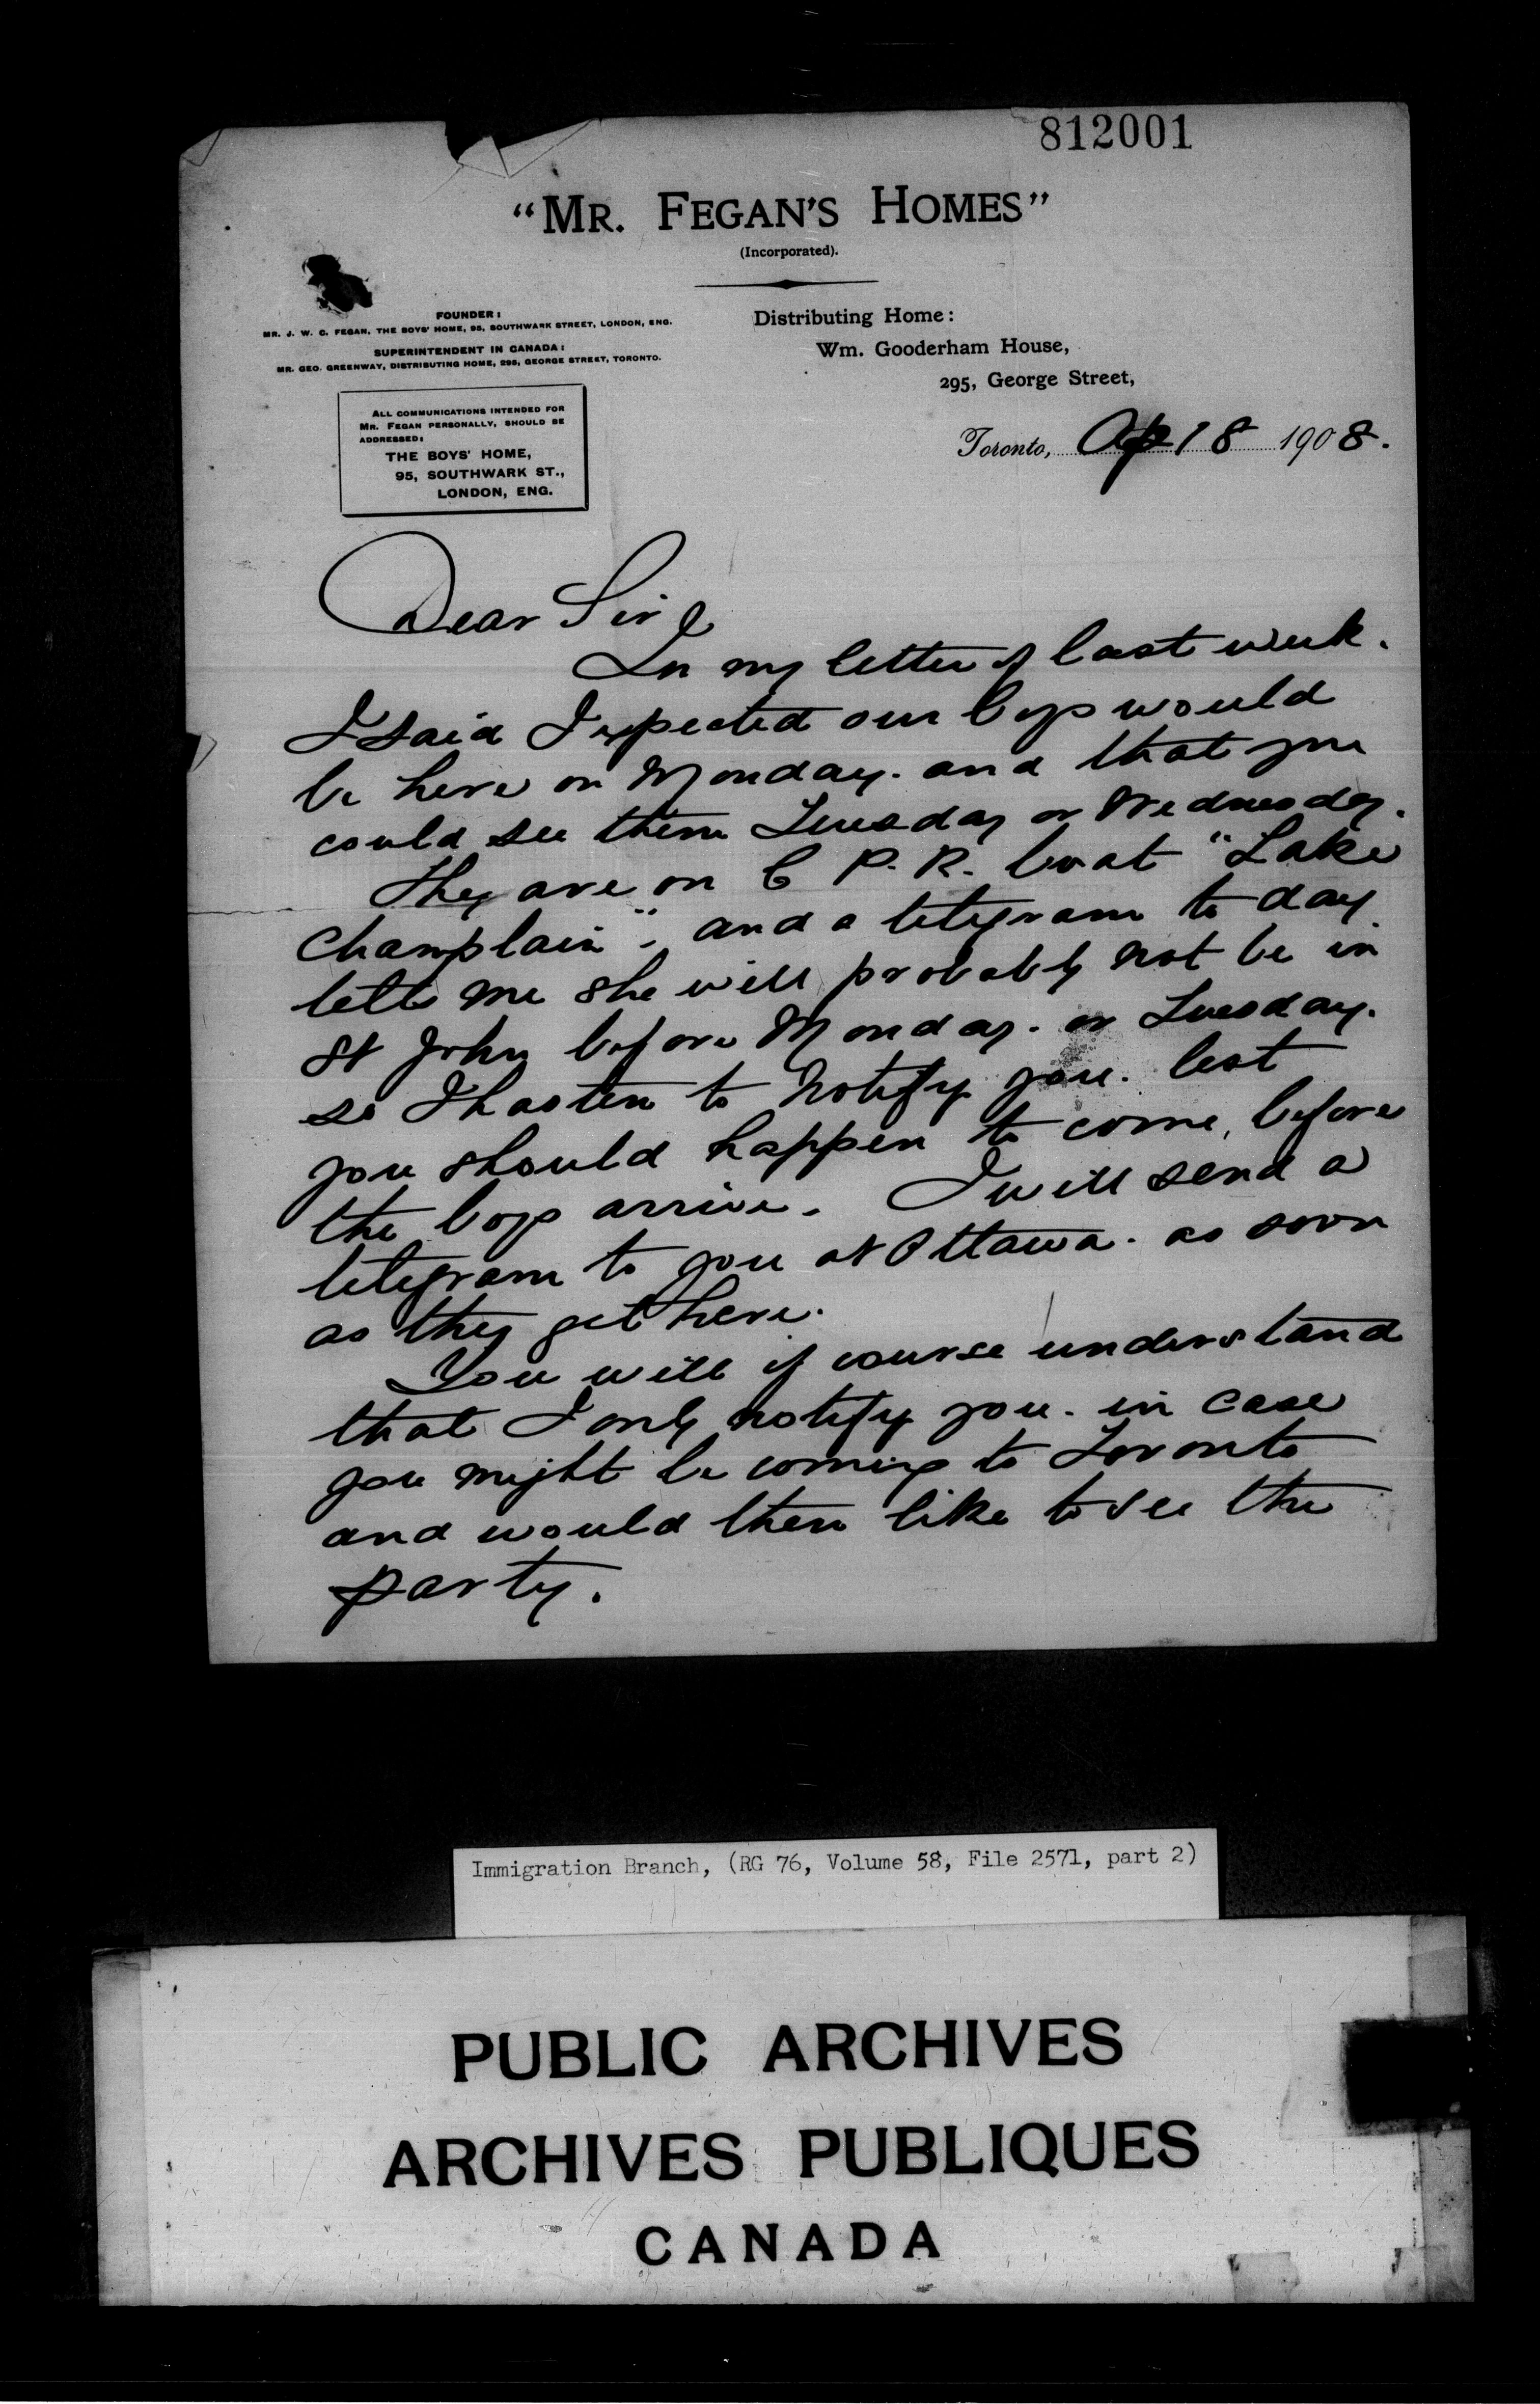 812001
"MR. FEGAN'S HOMES"
(Incorporated).
FOUNDER:
MR. J. W. C. FEGAN, THE BOYS' HOME, 95, SOUTHWARK STREET, LONDON, ENG.
SUPERINTENDENT IN CANADA:
MR. GEO. GREENWAY, DISTRIBUTING HOME, 295, GEORGE STREET, TORONTO.
ALL COMMUNICATIONS INTENDED FOR
MR. FEGAN PERSONALLY, SHOULD BE
ADDRESSED:
THE BOYS' HOME,
95, SOUTHWARK ST.,
LONDON, ENG.
Distributing Home:
Wm. Gooderham House,
295, George Street,
Toronto, Ap 18 1908.
Dear Sir
In my letter of last week.
I said I expected our boys would
be here on Monday. and that you
could see them Tuesday or Wednesday.
They are on C P. R. boat "Lake
Champlain", and a telegram to day
tells me she will probably not be in
St John before Monday. or Tuesday.
so I hasten to notify you. lest
you should happen to come, before
the boys arrive. I will send a
telegram to you at Ottawa. as soon
as they get here.
You will of course understand
that I only notify you. in case
you might be coming to Toronto
and would then like to see the
party.
Immigration Branch, (RG 76, Volume 58, File 2571, part 2)
PUBLIC ARCHIVES
ARCHIVES PUBLIQUES
CANADA